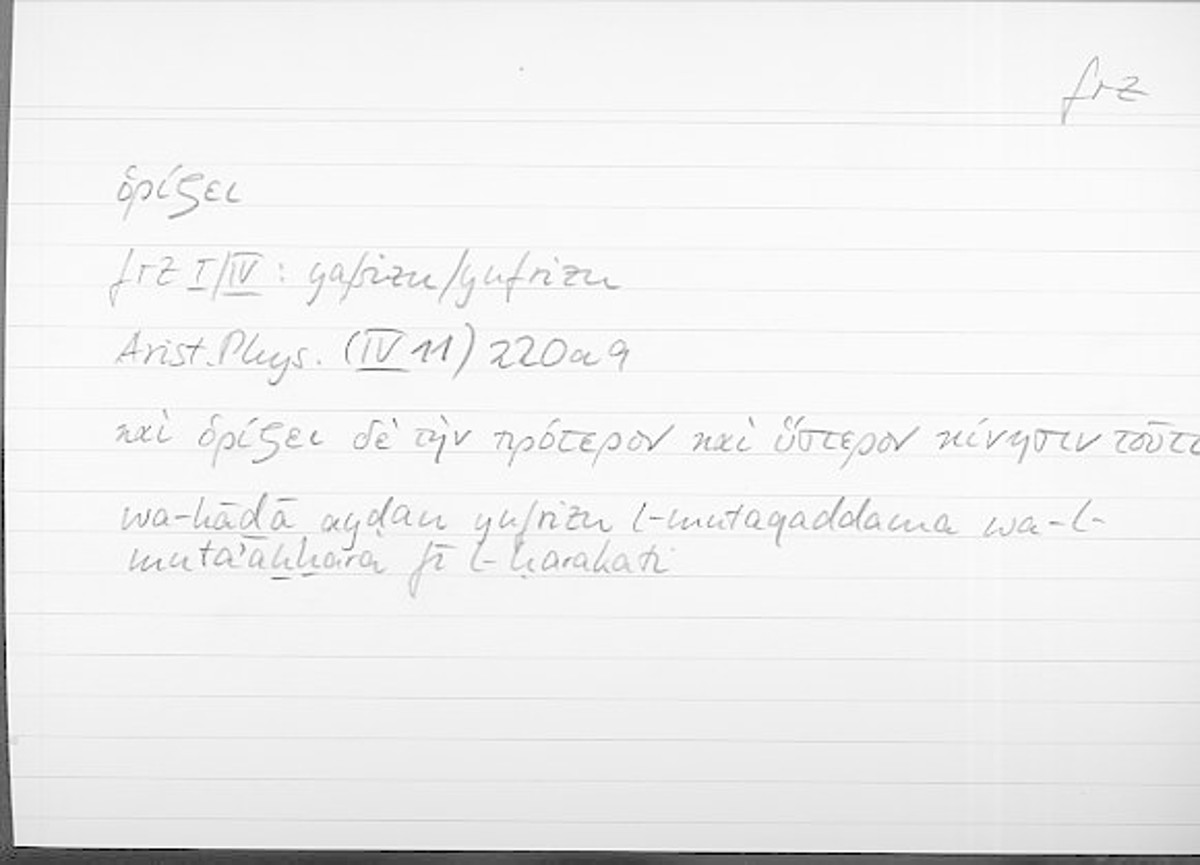 frz
ὁρίζει
frz I/IV : yafrizu/yufrizu
Arist. Phys. (IV 11) 220a9
καὶ ὁρίζει δὲ τὴν πρότερον καὶ ὕστερον κίνησιν τοῦτο
wa-hāḏā ayḍan yufrizu l-mutaqaddama wa-l-
mutaʾaḫḫara fī l-ḥarakati